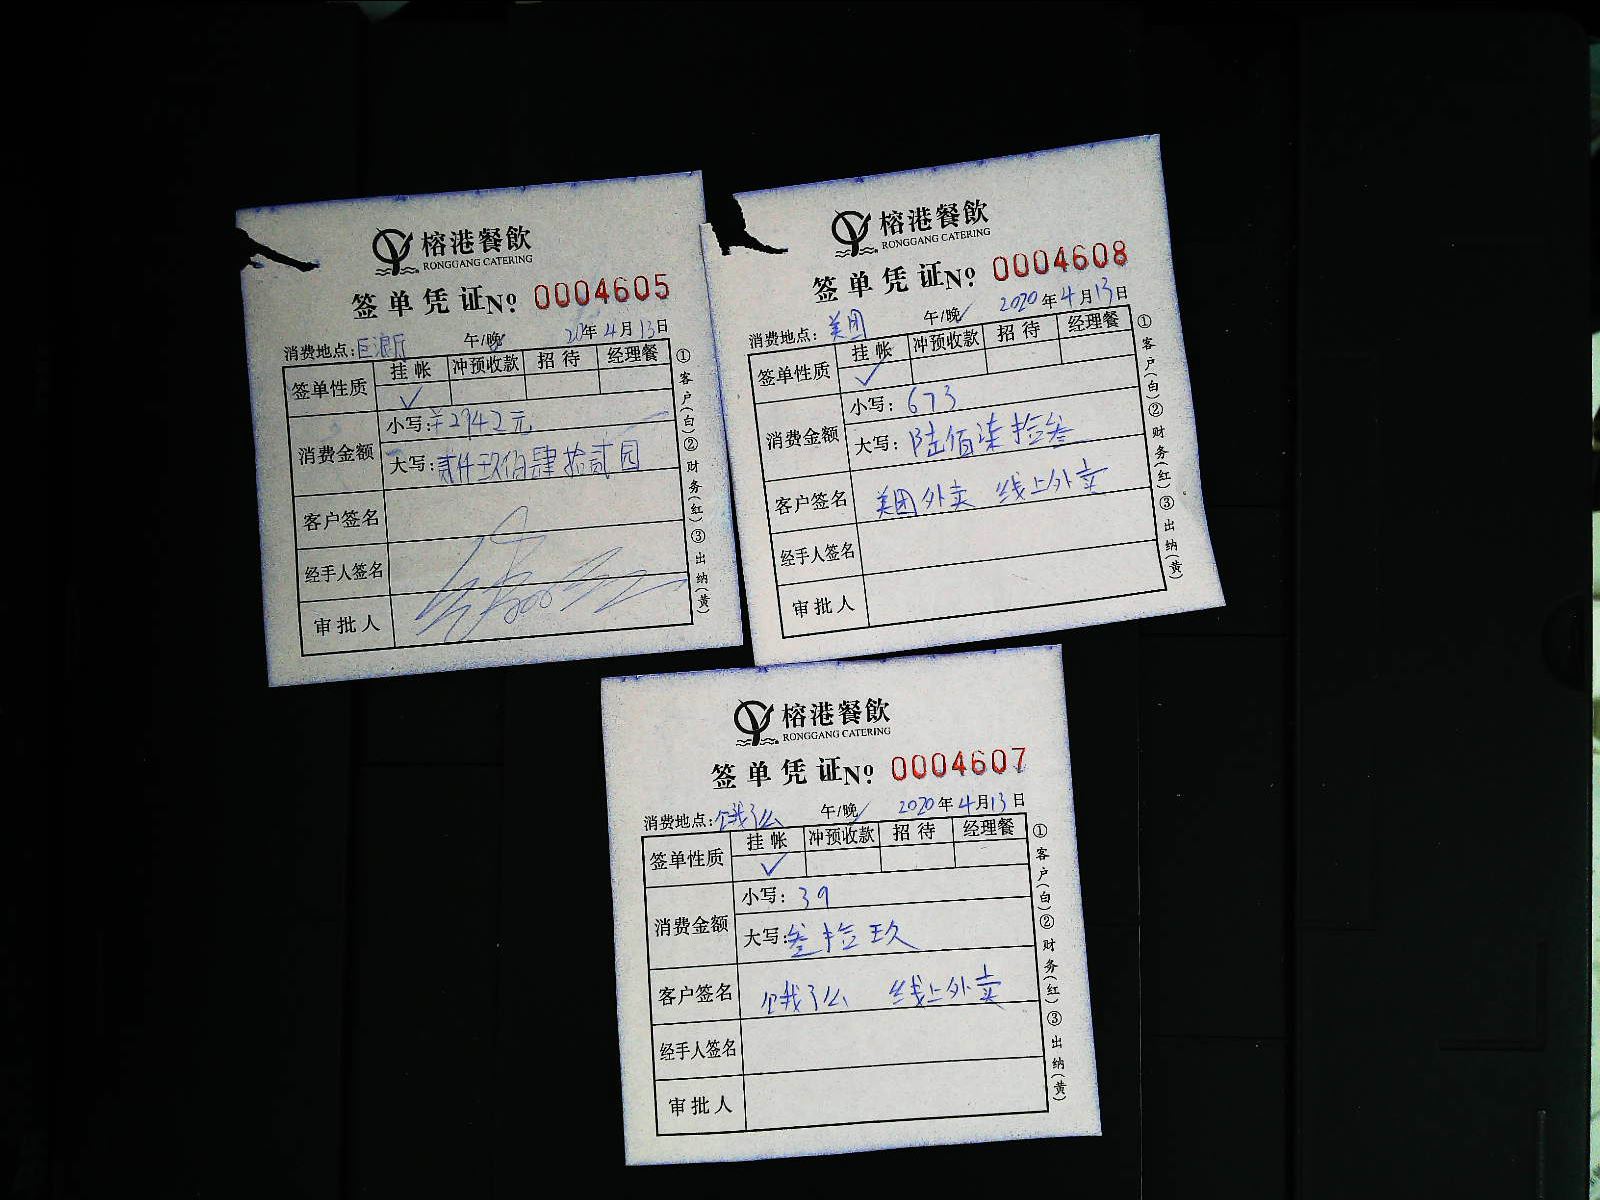 榕港餐飲
RONGGANG CATERING
签单凭证№ 0004605
消费地点:巨浪厅 午/晚 20年4月13日
签单性质 挂帐 冲预收款 招待 经理餐
✓
消费金额 小写:¥2942元
大写:贰仟玖佰肆拾贰园
客户签名
经手人签名
审批人
①客户(白)②财务(红)③出纳(黄)
榕港餐飲
RONGGANG CATERING
签单凭证№ 0004608
消费地点:美团 午/晚 2020年4月13日
签单性质 挂帐 冲预收款 招待 经理餐
✓
消费金额 小写:673
大写:陆佰柒拾叁
客户签名 美团外卖 线上外卖
经手人签名
审批人
①客户(白)②财务(红)③出纳(黄)
榕港餐飲
RONGGANG CATERING
签单凭证№ 0004607
消费地点:饿了么 午/晚 2020年4月13日
签单性质 挂帐 冲预收款 招待 经理餐
✓
消费金额 小写:39
大写:叁拾玖
客户签名 饿了么 线上外卖
经手人签名
审批人
①客户(白)②财务(红)③出纳(黄)